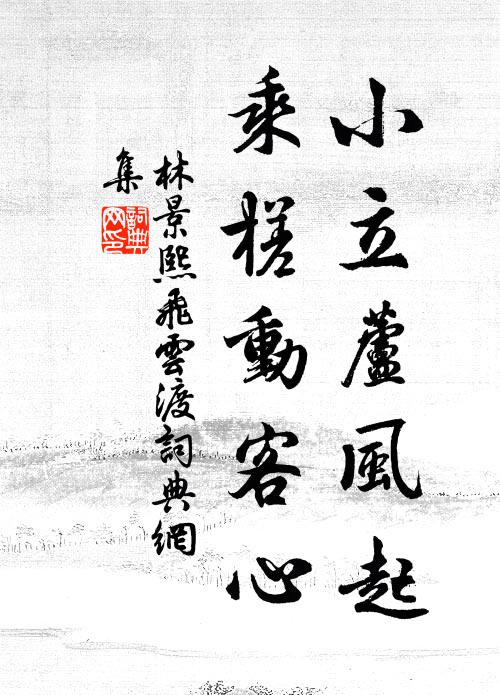 小立蘆風起
乘槎動客心
林景熙飛雲渡詞典網
集
詞典网印